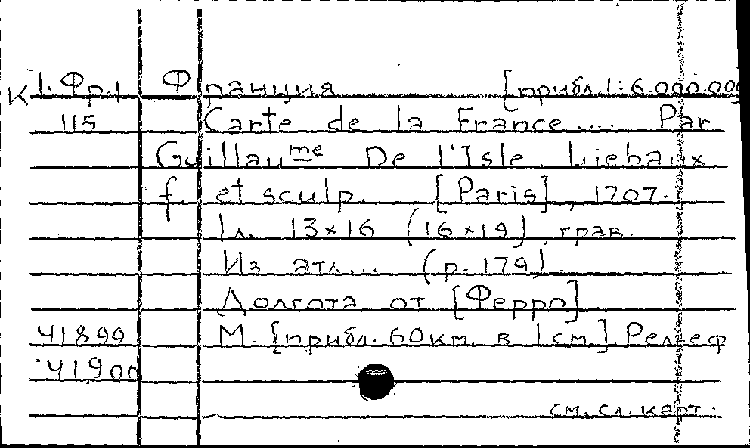 К 1.Фр.1 Франция [прибл. 1:6.000.000
115 Carte de la France .... Par
Guillaume De l'Isle. Liebaux
f. et sculp. [Paris], 1707.
1л. 13×16 (16×19) грав.
Из атл... (p. 179)
Долгота от [Ферро]
41899 М. [прибл. 60км. в 1см.] Рельеф
41900
см. сл. карт.